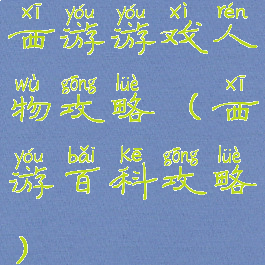 xī yóu yóu xì rén
西游游戏人
wù gōng lüè xī
物攻略（西
yóu bǎi kē gōng lüè
游百科攻略
）